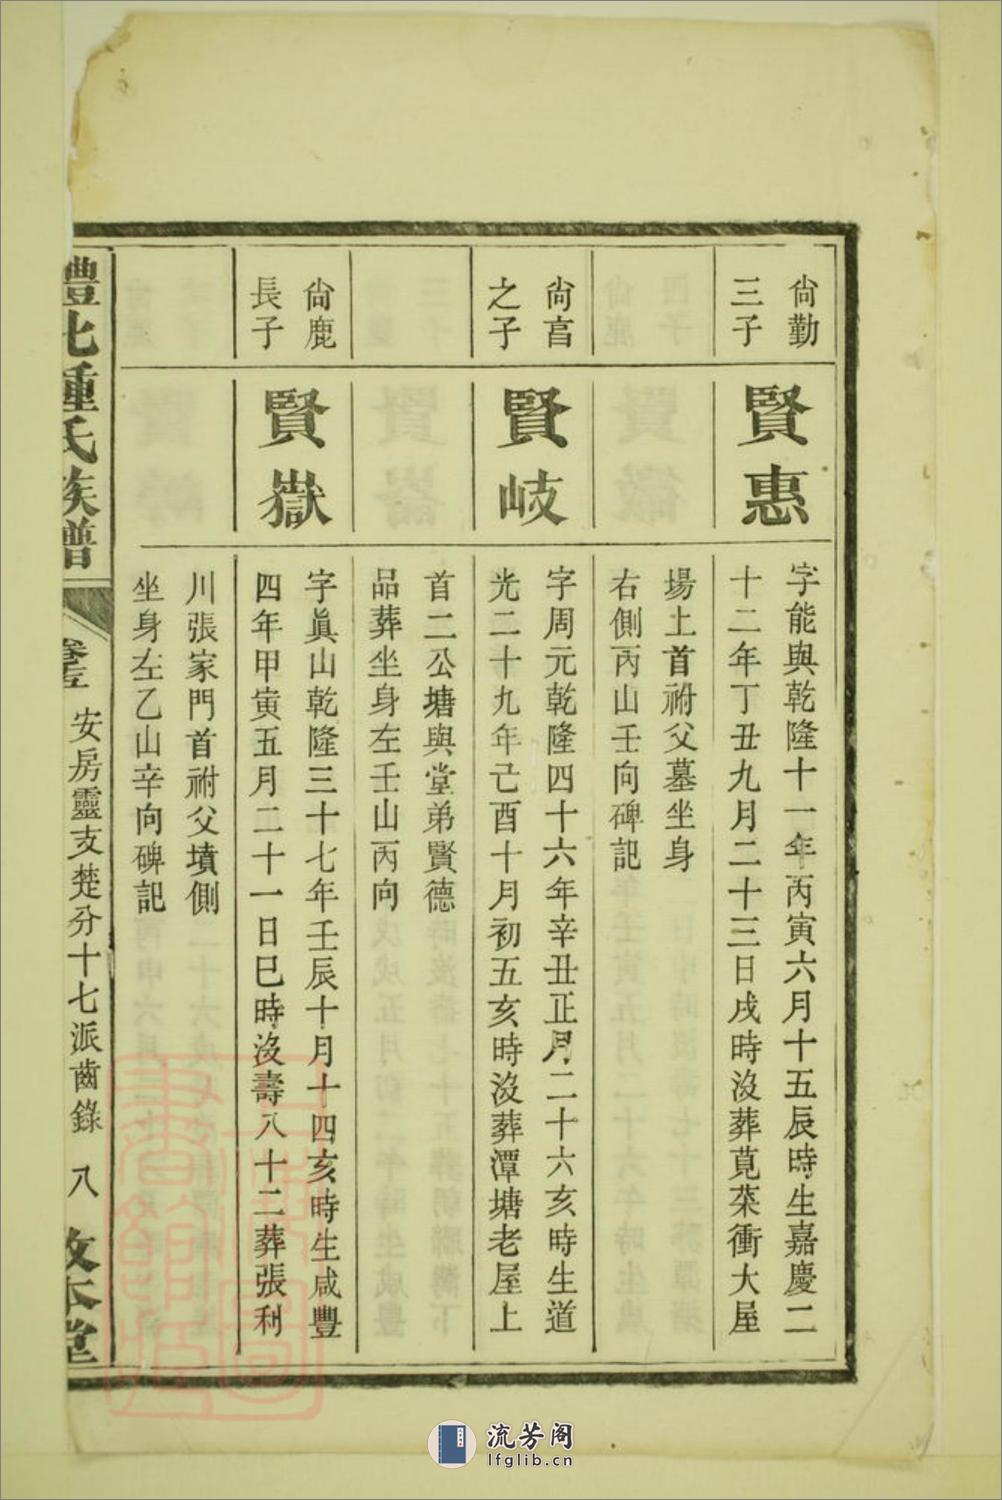 尙勤
三子
賢惠
字能與乾隆十一年丙寅六月十五辰時生嘉慶二
十二年丁丑九月二十三日戌時沒葬莧菜衝大屋
場土首祔父墓坐身
右側丙山壬向碑記
尙亯
之子
賢岐
字周元乾隆四十六年辛丑正月二十六亥時生道
光二十九年己酉十月初五亥時沒葬潭塘老屋上
首二公塘與堂弟賢德
品葬坐身左壬山丙向
尙鹿
長子
賢嶽
字眞山乾隆三十七年壬辰十月十四亥時生咸豐
四年甲寅五月二十一日巳時沒壽八十二葬張利
川張家門首祔父墳側
坐身左乙山辛向碑記
北鍾氏族譜
卷 安房靈支楚分十七派齒錄 八 敦本堂
流芳阁
lfglib.cn